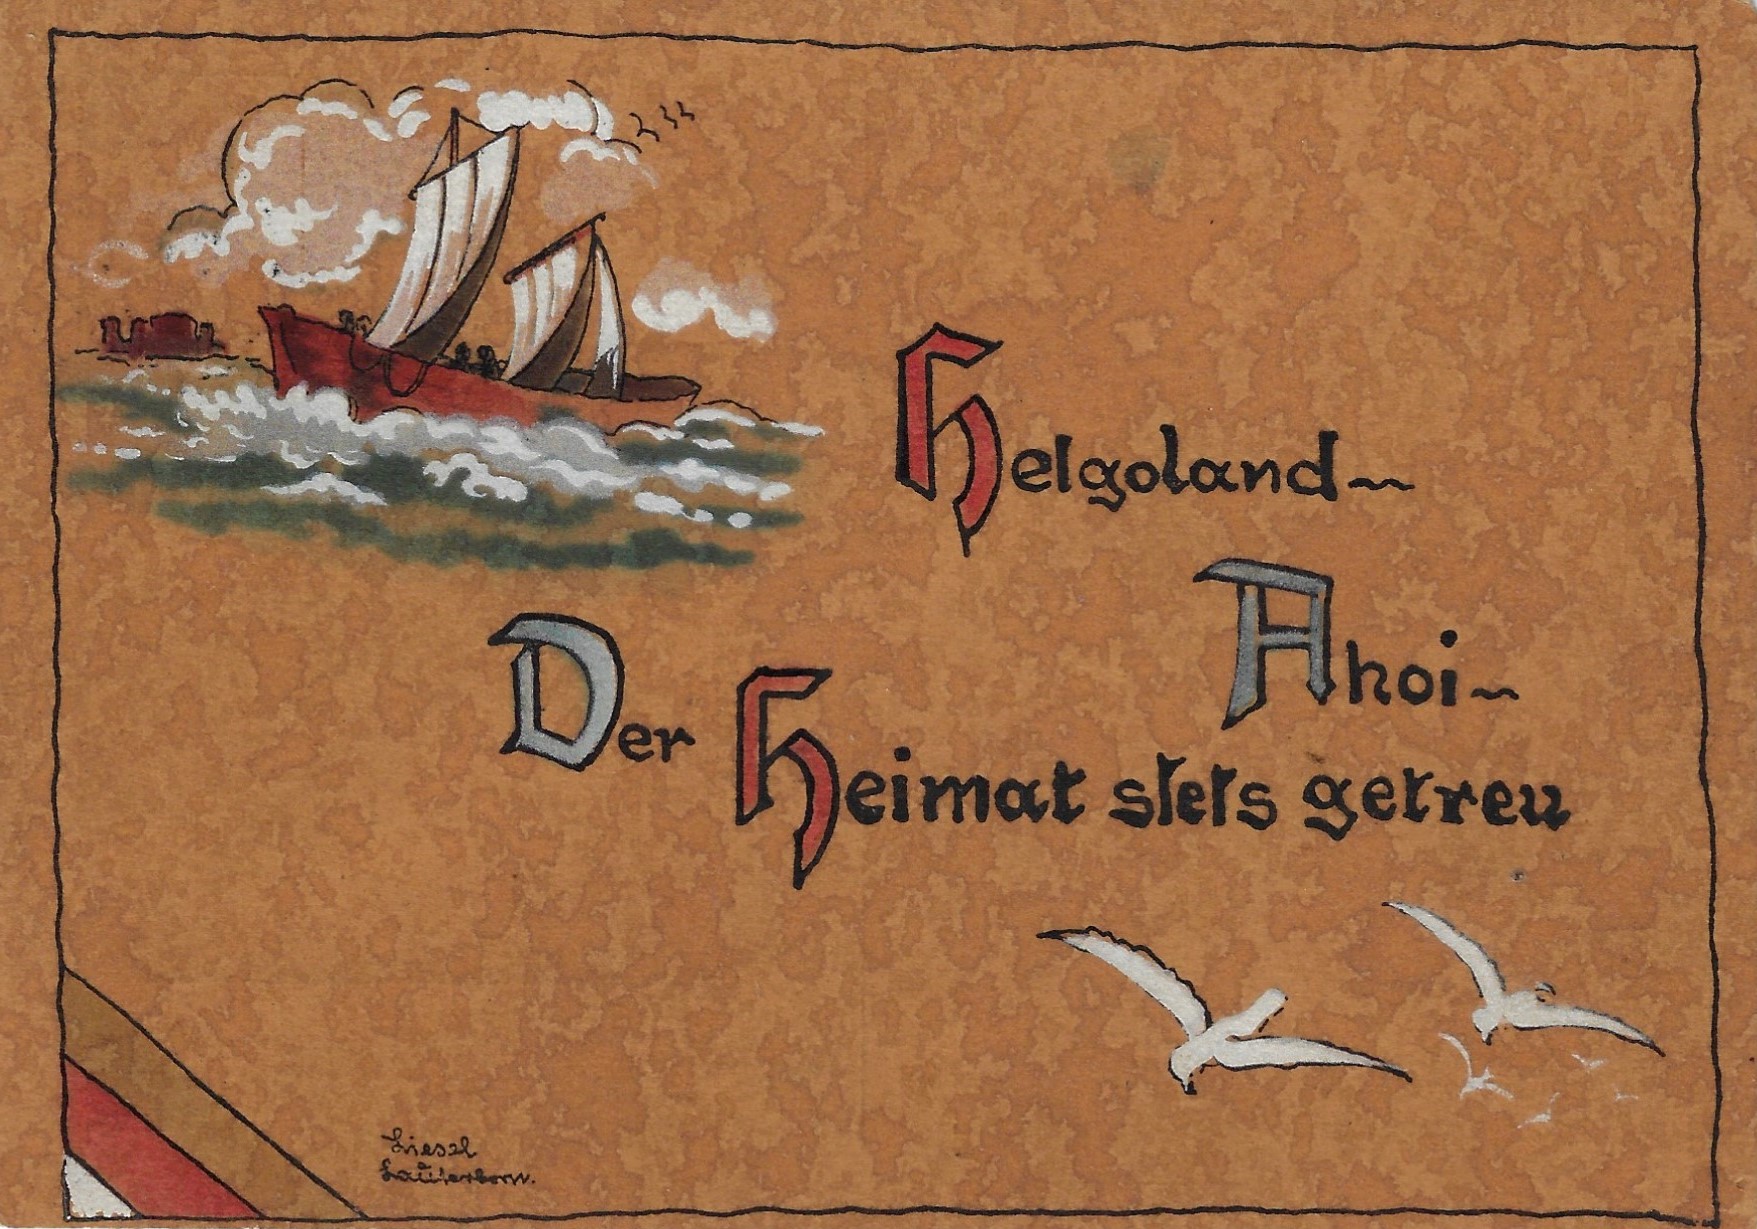 Helgoland~
Ahoi~
Der Heimat stets getreu
Liesel
Lauterborn.